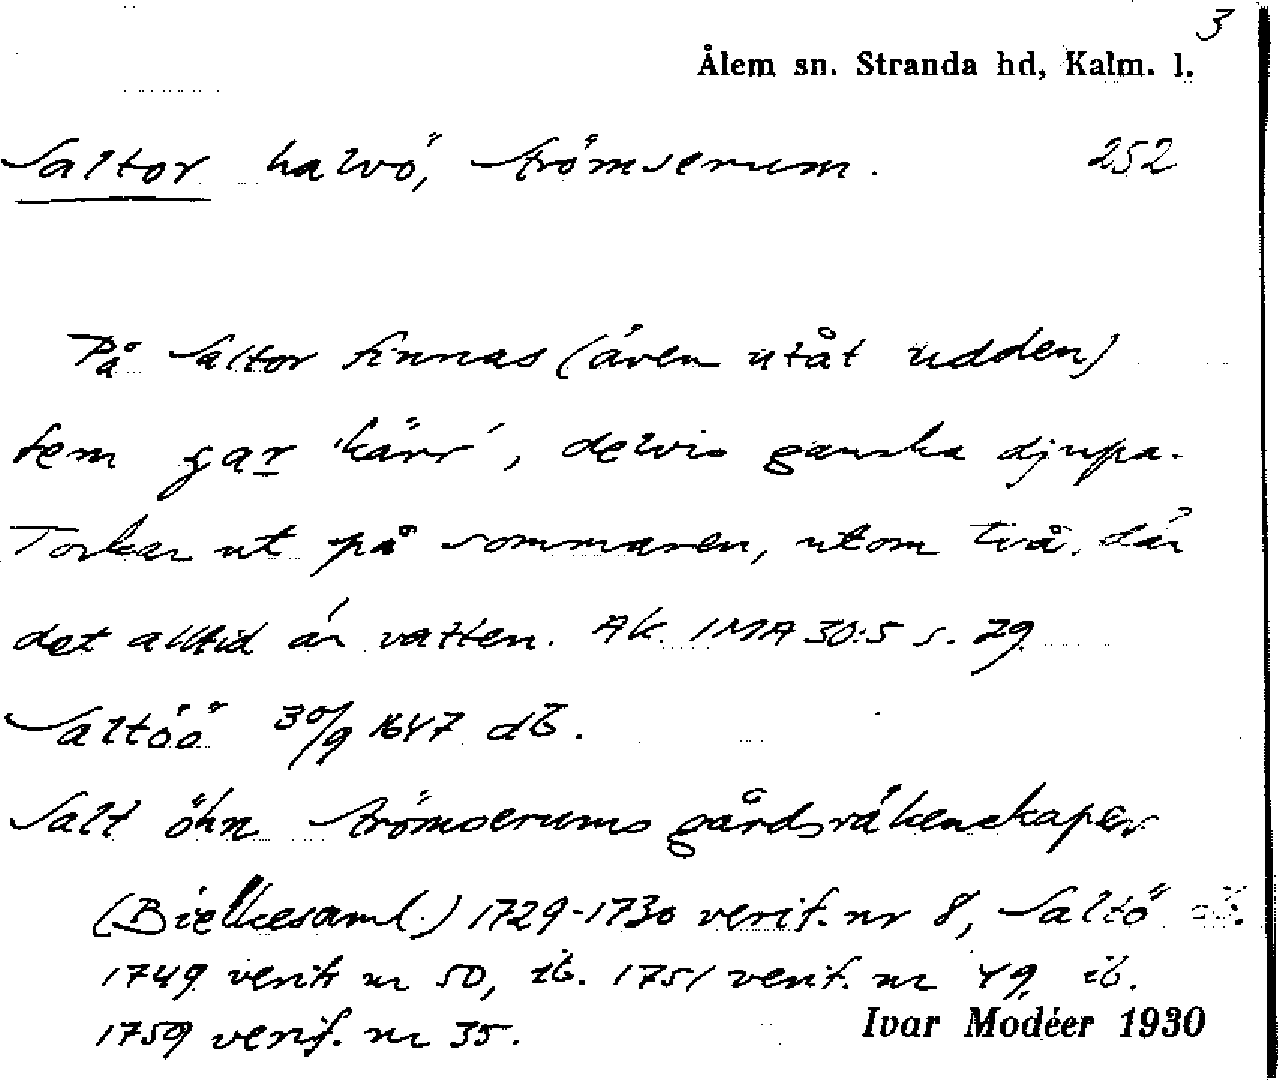 3
Ålem sn. Stranda hd, Kalm. l.
Saltor halvö, Strömserum. 252
På Saltor finnas (även utåt udden)
fem gar 'kärr', delvis ganska djupa.
Torkar ut på sommaren, utom två, där
det alltid är vatten. Ak. IMA 30:5 s. 79
Saltöö 30/9 1647 db.
Salt öhn Strömserums gårdsräkenskaper
(Bielkesaml.) 1729-1730 verif. nr 8, Saltö
1749 verif. nr 50, ib. 1751 verif. nr 49, ib.
1759 verif. nr 35.
Ivar Modéer 1930